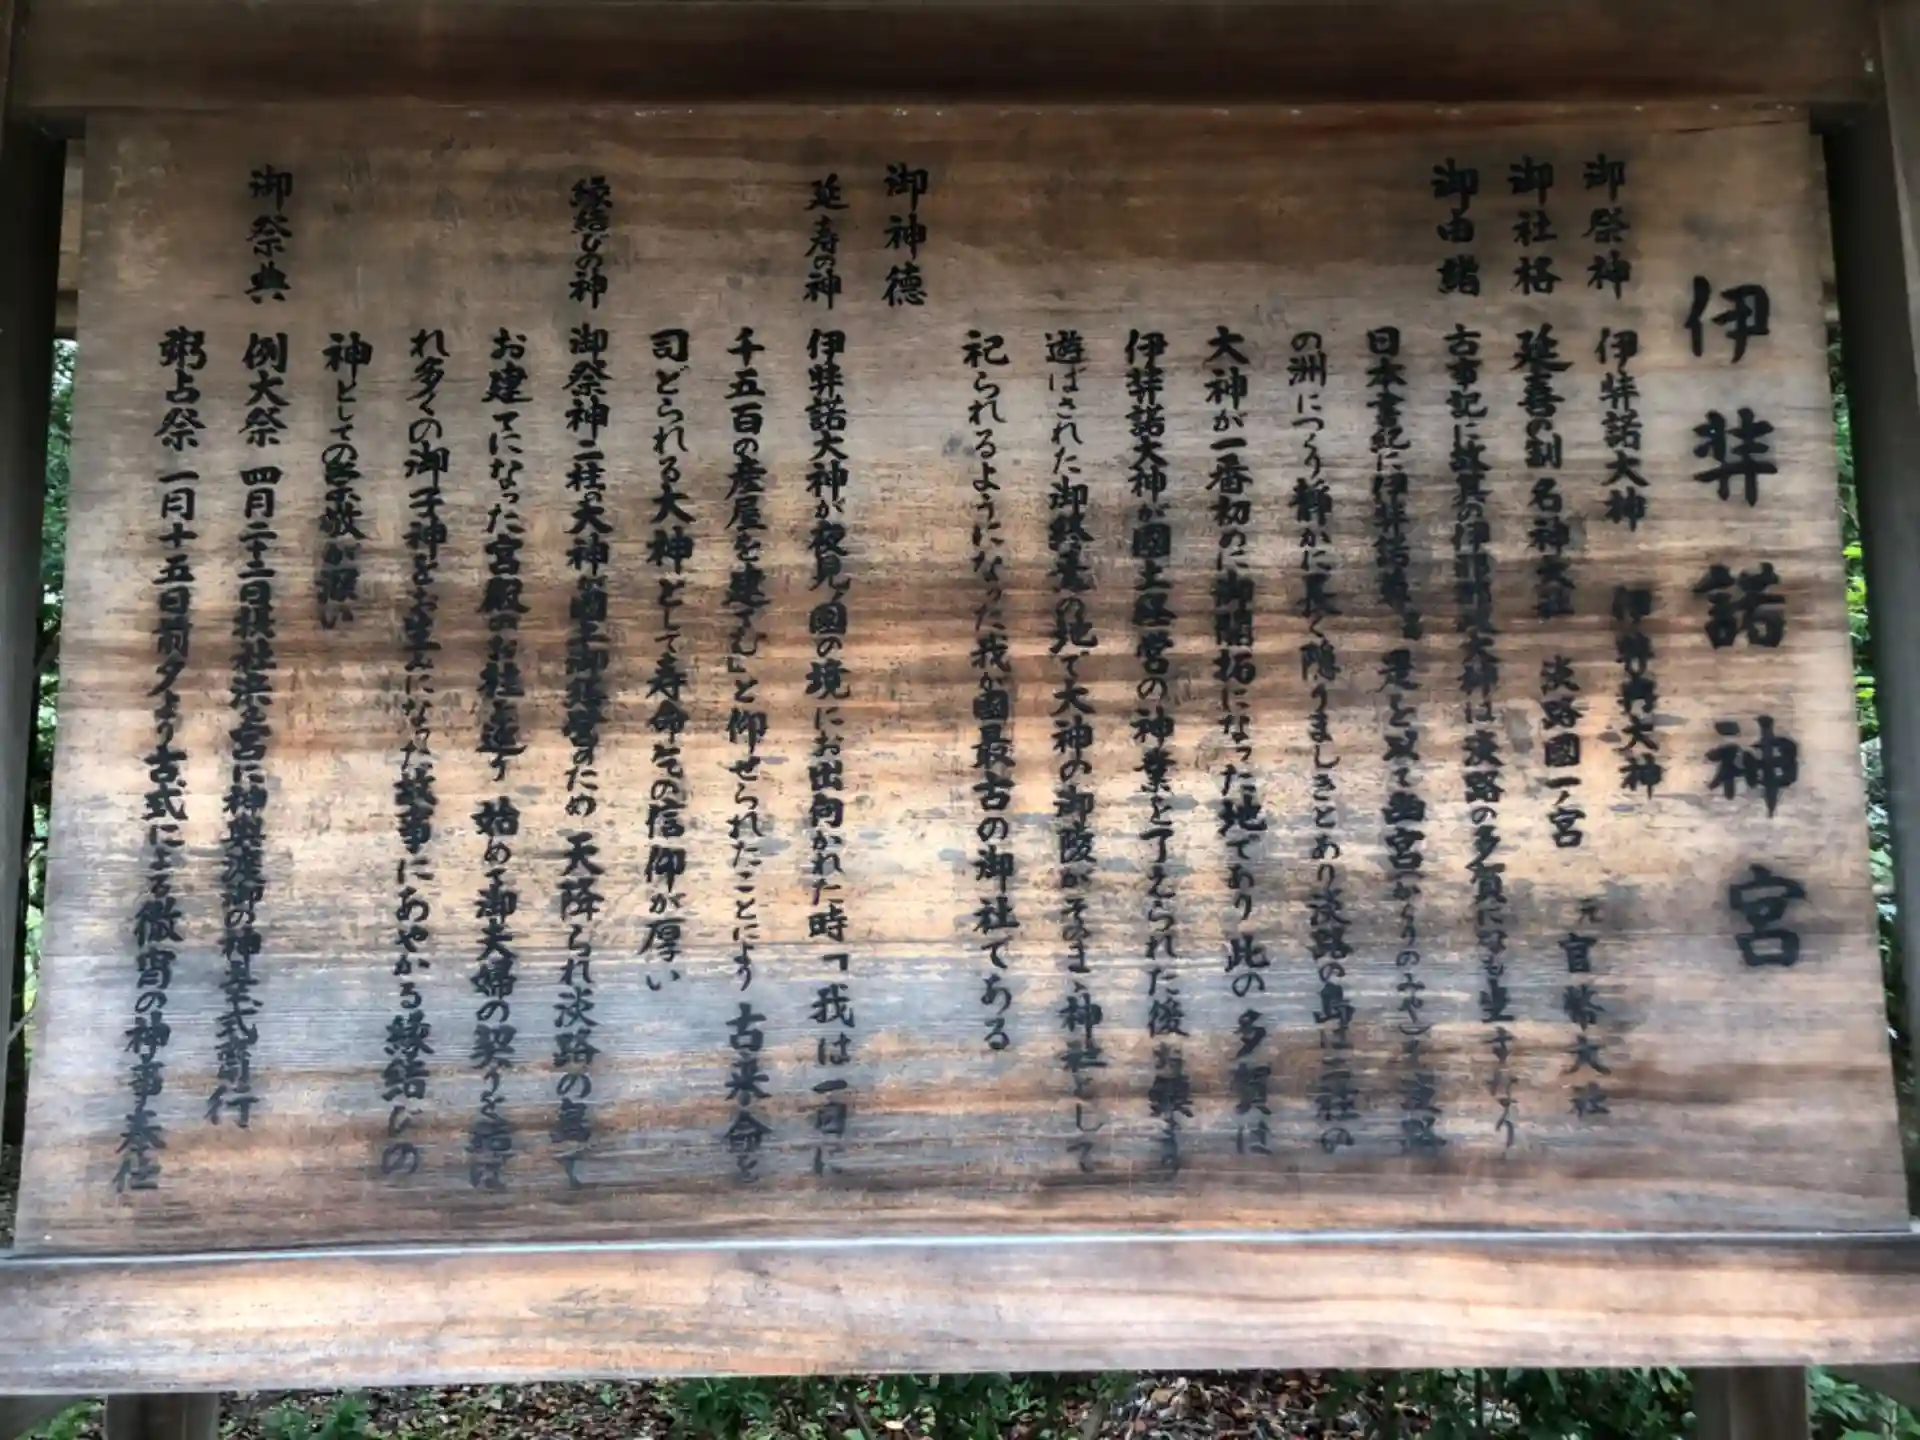 伊弉諾神宮
御祭神 伊弉諾大神 伊弉冉大神
御社格 延喜の制 名神大社 淡路國一ノ宮 元官幣大社
御由諸 古事記に故其の伊邪那岐大神は淡路の多賀になも坐すなり
日本書紀に伊弉諾尊 是を以て幽宮(かくりのみや)を淡路
の洲につくり静かに長く隠りましきとあり淡路の島は二柱の
大神が一番初めに御開拓になった地であり此の多賀は
伊弉諾大神が國土経営の神業を了えられた後お鎮まり
遊ばされた御終焉の地で大神の御陵がそのまゝ神社として
祀られるようになった我が國最古の御社である
御神徳
延寿の神 伊弉諾大神が夜見國の境にお出向かれた時「我は一日に
千五百の産屋を建てむ」と仰せられたことにより古来命を
司どられる大神として寿命乞の信仰が厚い
縁結びの神 御祭神二柱の大神が國土御経営のため天降られ淡路の島で
お建てになった宮殿のお柱を廻り始めて御夫婦の契りを結ば
れ多くの御子神をお生みになった故事にあやかる縁結びの
神としての崇敬が深い
御祭典 例大祭 四月二十二日摂社浜之宮に神輿渡御の神幸式斎行
粥占祭 一月十五日前夕より古式による徹宵の神事奉仕